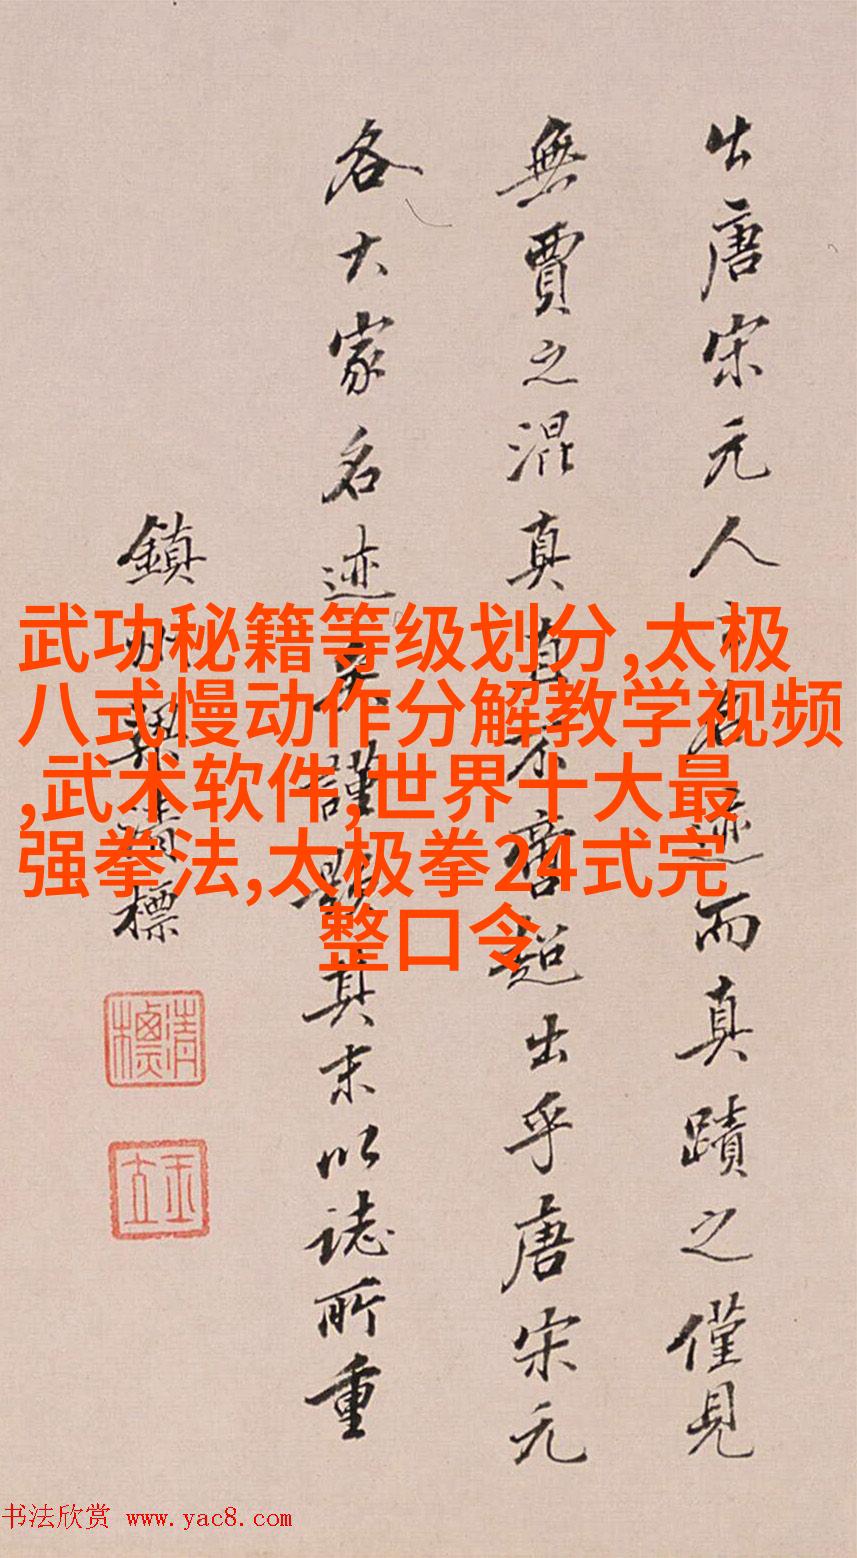 出唐宋元人迹而真蹟之僅見
無賈之混真直不啻超出乎唐宋元
各大家名迹矣謹題其末以誌所重
鎮州梁清標
清標
玉立
武功秘籍等级划分,太极
八式慢动作分解教学视频
,武术软件,世界十大最
强拳法,太极拳24式完
整口令
书法欣赏 www.yac8.com